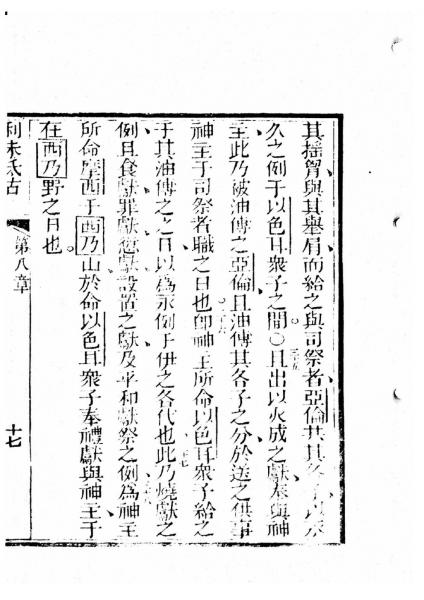 其搖胷與其舉肩而給之與司祭者亞倫共其各子以永
久之例于以色耳衆子之間○且出以火成之獻奉與神
主此乃被油傅之亞倫且油傅其各子之分於送之供事
神主于司祭者職之日也卽神主所命以色耳衆子給之
于其油傅之之日以爲永例于伊之各代也此乃燒獻之
例且食獻罪獻愆獻設置之獻及平和獻祭之例爲神主
所命摩西于西乃山於命以色耳衆子奉禮獻與神主于
在西乃野之日也
利未氏古
第八章
十七